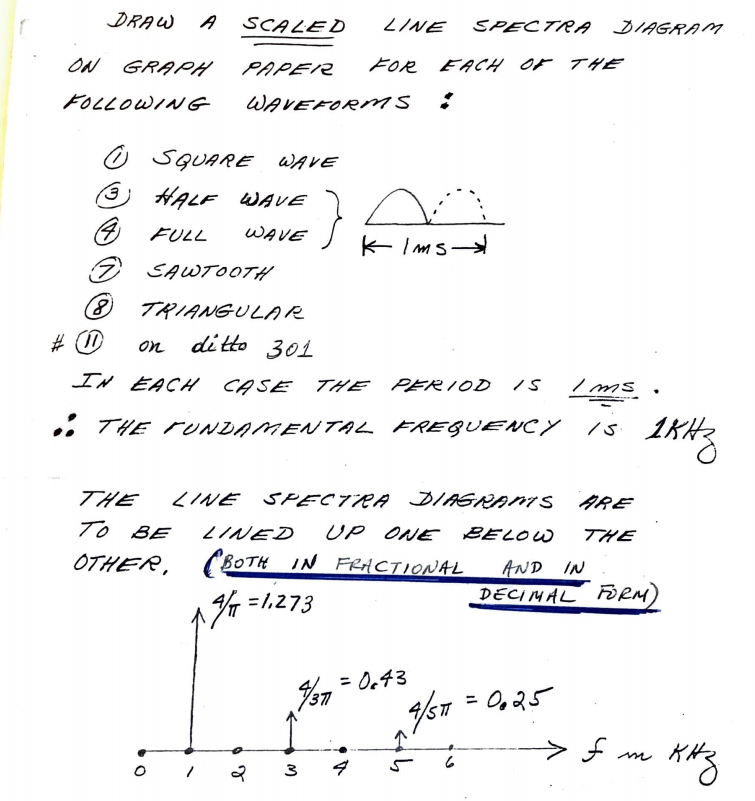 DRAW A SCALED LINE SPECTRA DIAGRAM
ON GRAPH PAPER FOR EACH OF THE
FOLLOWING WAVEFORMS :
① SQUARE WAVE
③ HALF WAVE
④ FULL WAVE
1 ms
⑦ SAWTOOTH
⑧ TRIANGULAR
# ⑪ on ditto 301
IN EACH CASE THE PERIOD IS 1 ms .
∴ THE FUNDAMENTAL FREQUENCY IS 1KHz
THE LINE SPECTRA DIAGRAMS ARE
TO BE LINED UP ONE BELOW THE
OTHER. (BOTH IN FRACTIONAL AND IN
DECIMAL FORM)
4/π = 1.273
4/3π = 0.43
4/5π = 0.25
0 1 2 3 4 5 6 f in KHz